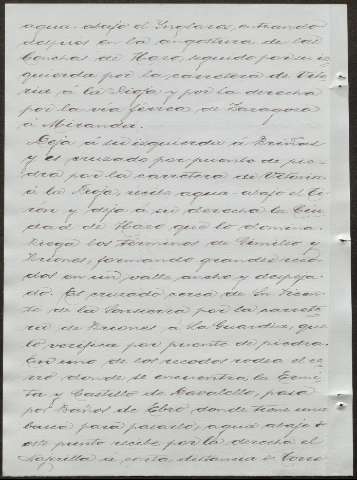 agua abajo el Inglares, entrando
despues en la angostura de las
Conchas de Haro, seguido por su iz
quierda por la carretera de Vito
ria á la Rioja y por la derecha
por la via ferrea de Zaragoza
á Miranda.
Deja á su izquierda á Briñas
y es cruzado por puente de pie
dra por la carretera de Vitoria
á la Rioja, recibe agua abajo el Ti
rón y deja á su derecha la Ciu
dad de Haro que lo domina.
Riega los términos de Gimileo y
Briones, formando grandes reco
dos en un valle ancho y despeja
do. Es cruzado cerca de Sn. Vicen
te de la Sonsierra por la carrete
ra de Briones a La Guardia, que
lo verifica por puente de piedra.
En uno de los recodos rodea el ce
rro donde se encuentra la Ermi
ta y Castillo de Davalillo, pasa
por Baños de Ebro donde tiene una
barca para pasarlo, agua abajo de
este punto recibe por la derecha el
á corta distancia de Torre